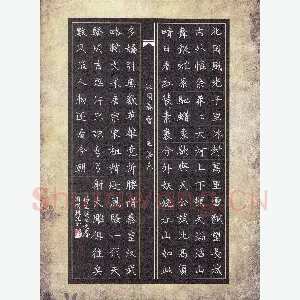 北國風光千里冰封萬里雪飄望長城
內外惟餘莽莽大河上下頓失滔滔山
舞銀蛇原馳蠟象欲與天公試比高須
晴日看紅裝素裹分外妖嬈江山如此
沁園春雪 毛澤東
多嬌引無數英雄競折腰惜秦皇漢武
略輸文采唐宗宋祖稍遜風騷一代天
驕成吉思汗只識彎弓射大雕俱往矣
數風流人物還看今朝